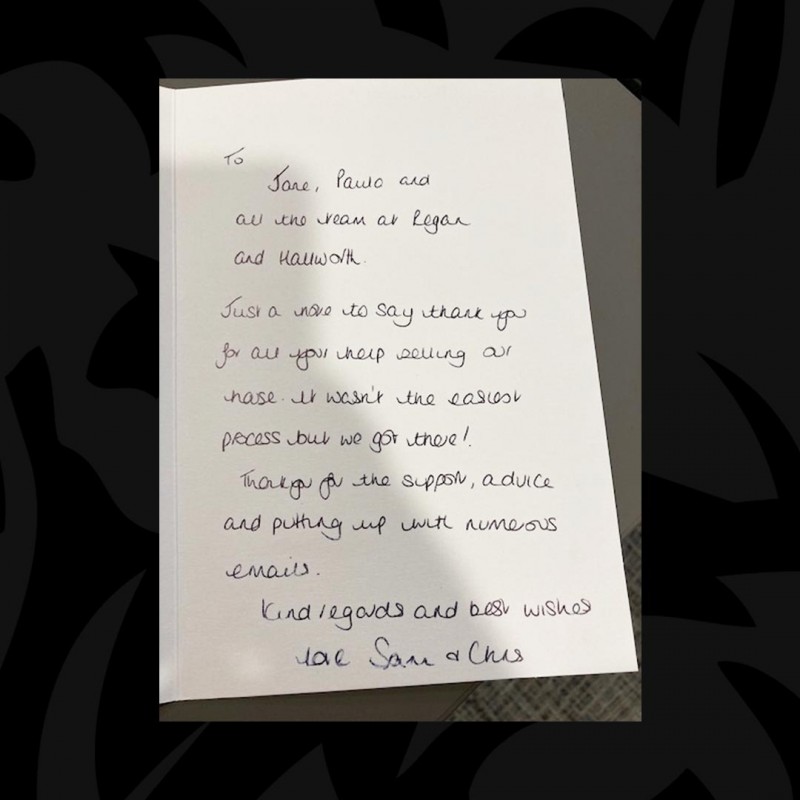 To
Jane, Paulo and
all the team at Regan
and Hallworth.
Just a note to say thank you
for all your help selling our
house. It wasn't the easiest
process but we got there!
Thankyou for the support, advice
and putting up with numerous
emails.
Kind regards and best wishes
love Sam & Chris